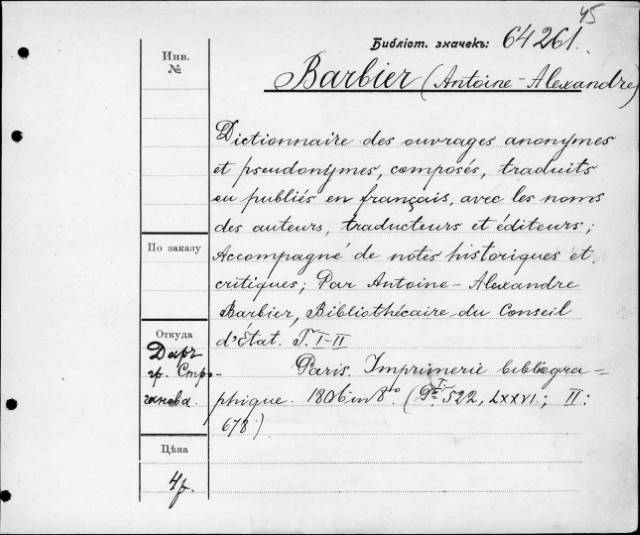 45
Библіот. значекъ: 64261.
Инв.
№
Barbier (Antoine-Alexandre)
Dictionnaire des ouvrages anonymes
et pseudonymes, composés, traduits
ou publiés en français, avec les noms
des auteurs, traducteurs et éditeurs;
По заказу
Accompagné de notes historiques et
critiques; Par Antoine-Alexandre
Barbier, Bibliothécaire du Conseil
d'État. T. I-II
Откуда
Даръ
гр. Стро-
ганова.
Paris. Imprimerie bibliogra=
phique. 1806 in 8º. (T. I: 522, LXXVI.; II:
678.)
Цѣна
4р.